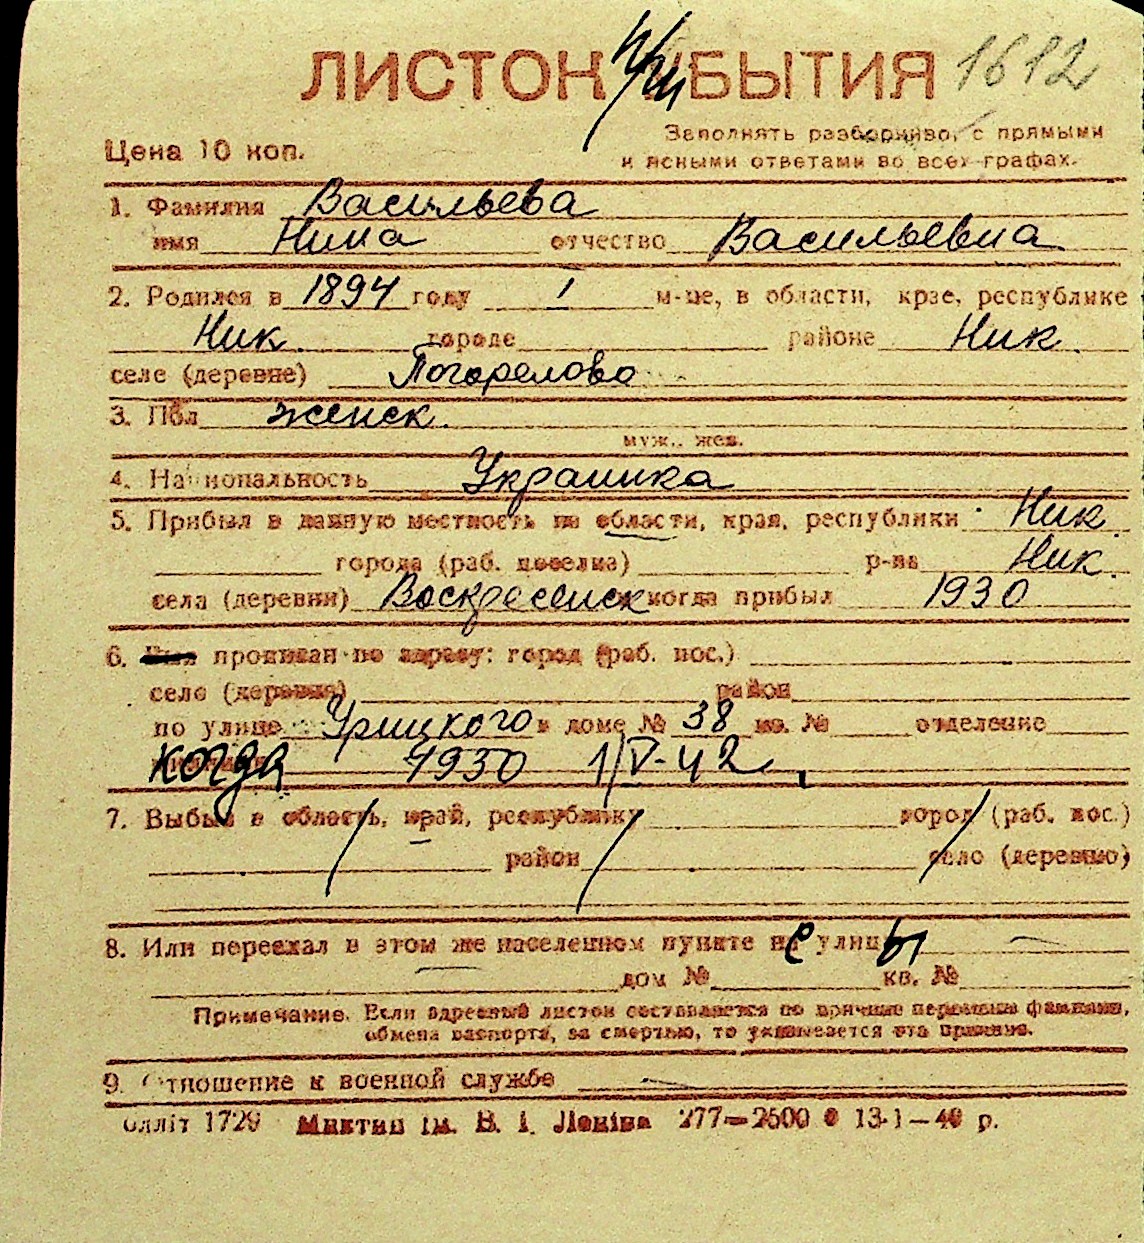 ЛИСТОК при БЫТИЯ 1612
Цена 10 коп.
Заполнять разборчиво, с прямыми
и ясными ответами во всех графах.
1. Фамилия Васильева
имя Нина отчество Васильевна
2. Родился в 1894 году 1 м-це, в области, крае, республике
Ник. городе районе Ник.
селе (деревне) Погорелово
3. Пол женск.
муж., жен.
4. Национальность Украинка
5. Прибыл в данную местность из области, края, республики Ник.
города (раб. поселка) р-на Ник.
села (деревни) Воскресенск когда прибыл 1930
6. прописан по адресу: город (раб. пос.)
село (деревня) район
по улице Урицкого в доме № 38 кв. № отделение
когда 1930 1/V-42
7. Выбыл в область, край, республику город (раб. пос.)
район село (деревню)
8. Или переехал в этом же населенном пункте не улицы
дом № кв. №
Примечание. Если адресный листок составляется по причине перемены фамилии,
обмена паспорта, за смертью, то указывается эта причина.
9. Отношение к военной службе
олліт 1729 Миктип ім. В. І. Леніна 277—2500 13-1—40 р.